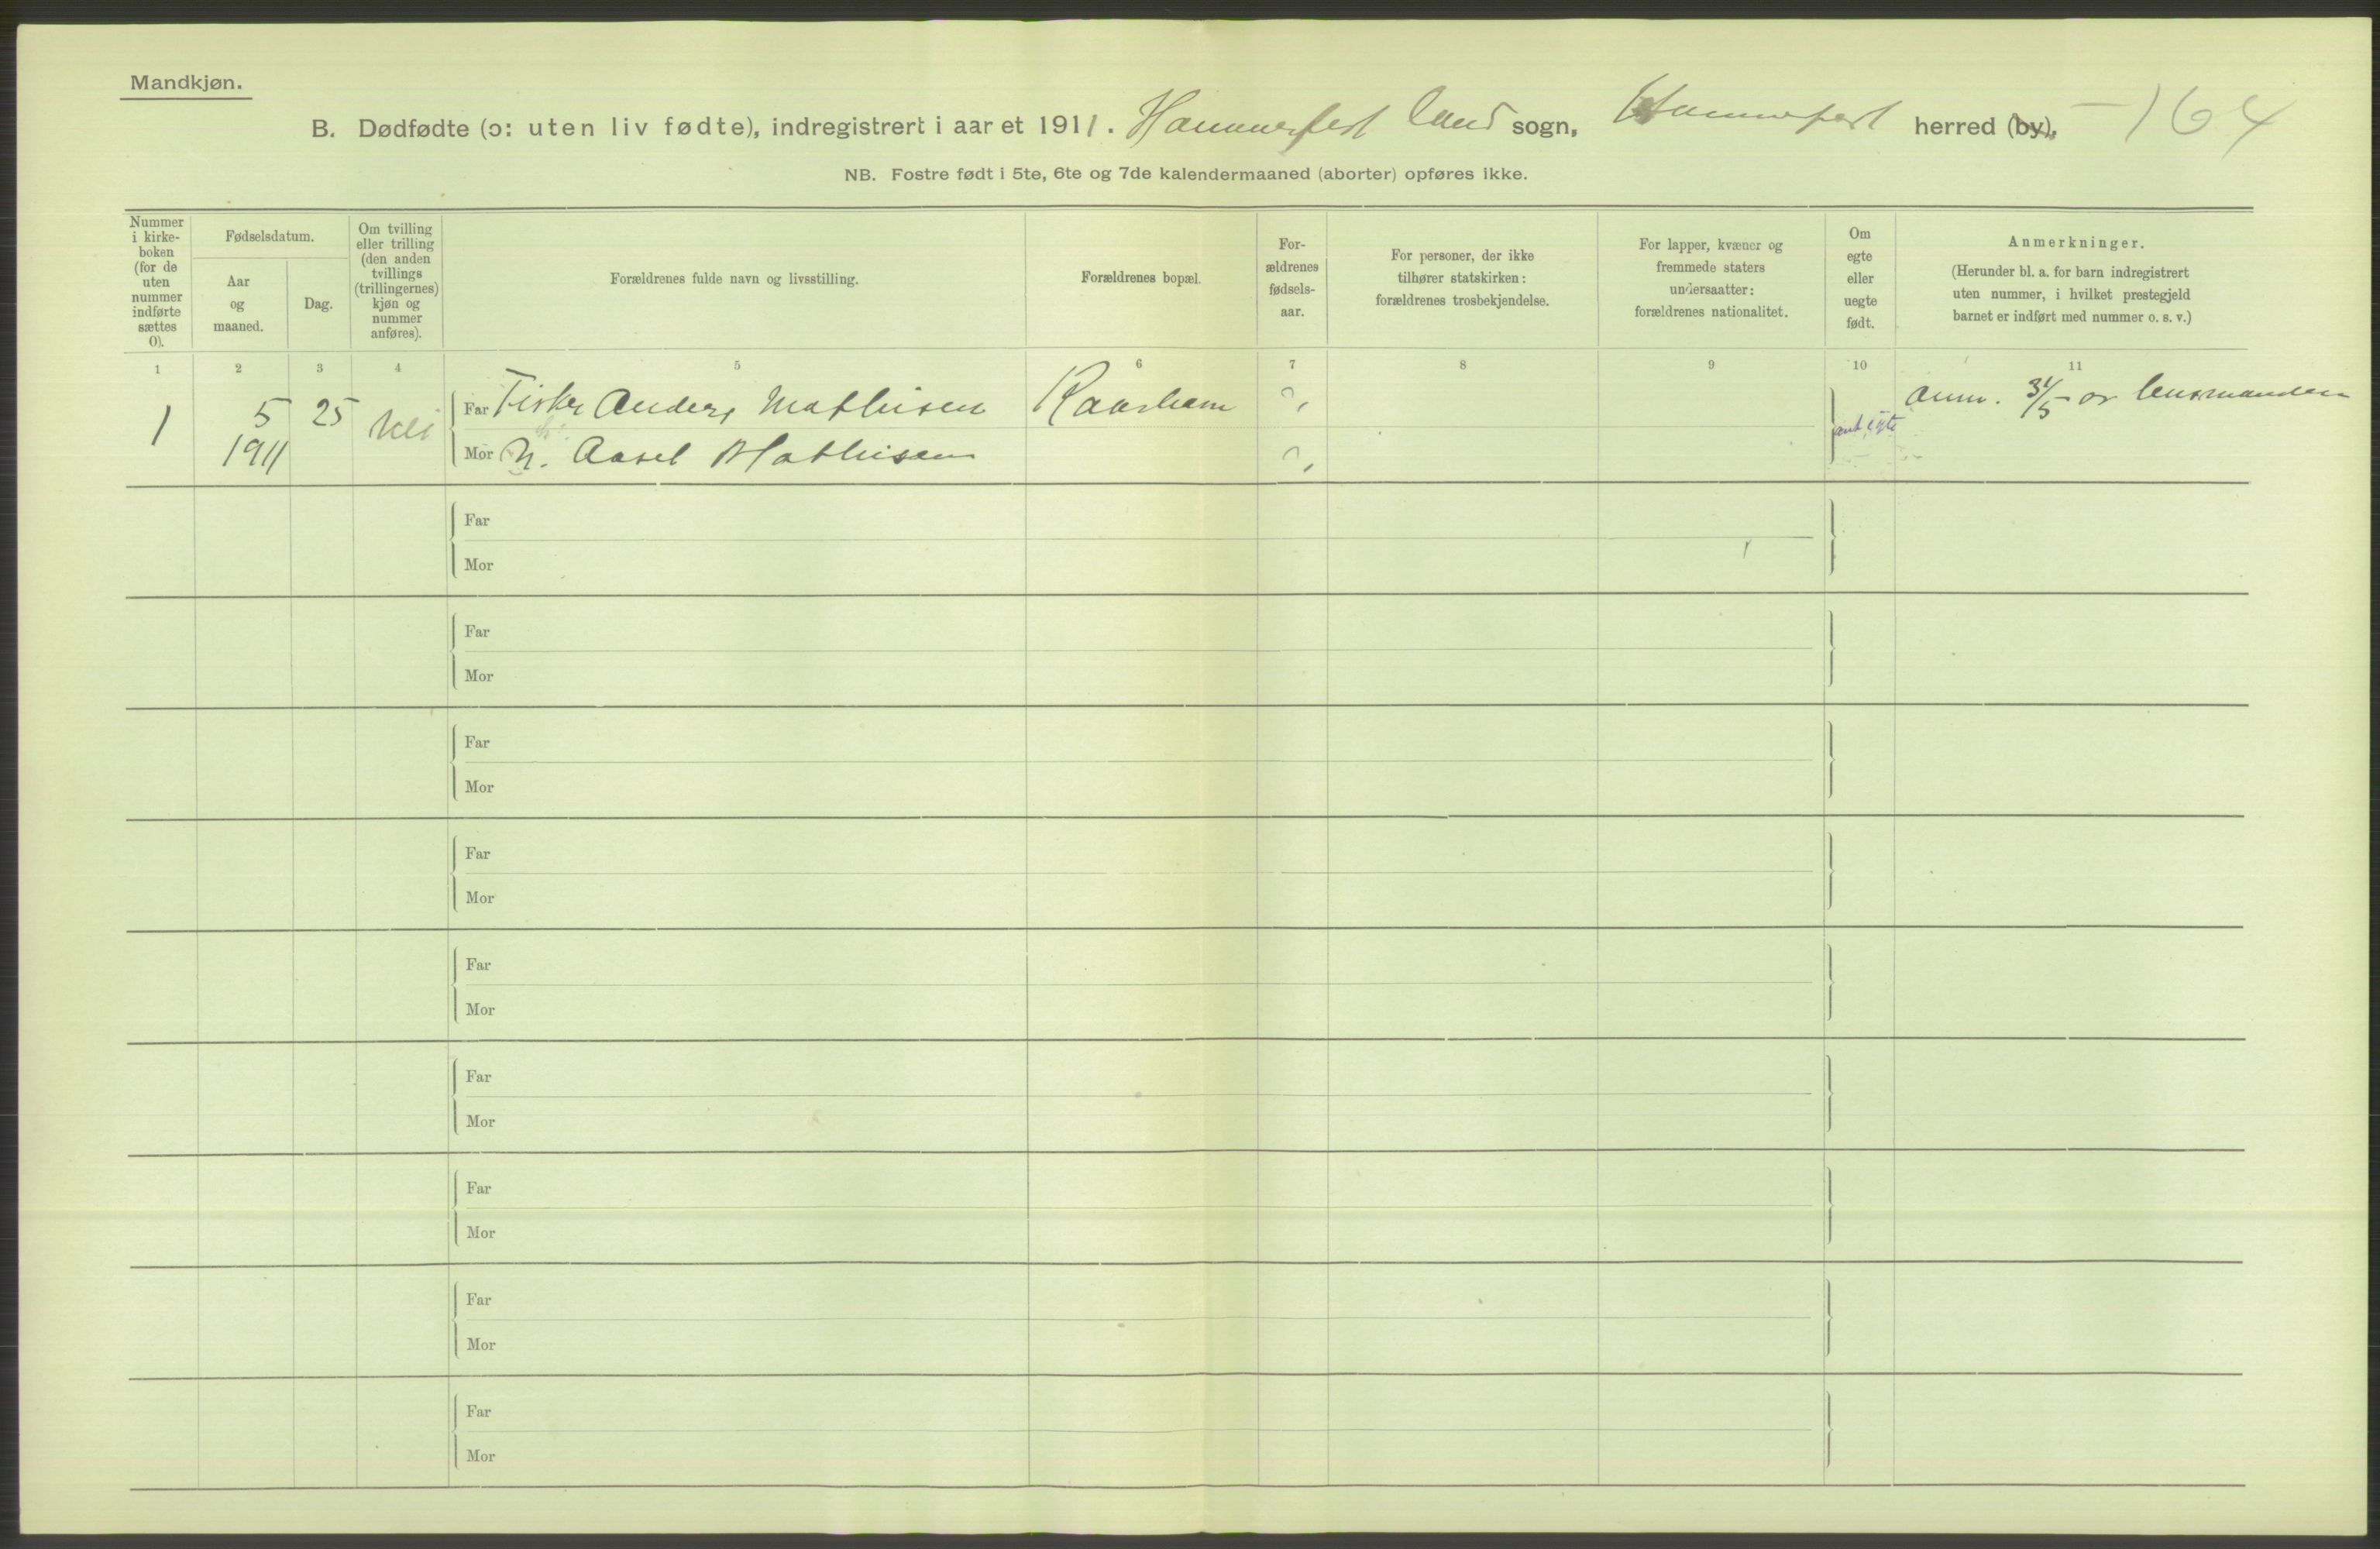 Mandkjøn.
B. Dødfødte (ɔ: uten liv fødte), indregistrert i aaret 1911. Hammerfest land sogn, Hammerfest herred (by), -164
NB. Fostre født i 5te, 6te og 7de kalendermaaned (aborter) opføres ikke.
Nummer i kirke-boken (for de uten nummer indførte sættes 0).
Fødselsdatum.
Aar og maaned.
Dag.
Om tvilling eller trilling (den anden tvillings (trillingernes) kjøn og nummer anføres).
Forældrenes fulde navn og livsstilling.
Forældrenes bopæl.
For-ældrenes fødsels-aar.
For personer, der ikke tilhører statskirken: forældrenes trosbekjendelse.
For lapper, kvæner og fremmede staters undersaatter: forældrenes nationalitet.
Om egte eller uegte født.
Anmerkninger.
(Herunder bl. a. for barn indregistrert uten nummer, i hvilket prestegjeld barnet er indført med nummer o. s. v.)
1 2 3 4 5 6 7 8 9 10 11
1 5 25 Nei Far Fisker Anders Mathisen ?, Anm. 31/5 av lensmanden
1911 Mor H. Aasel Mathisen ?, ant. egte
Far
Mor
Far
Mor
Far
Mor
Far
Mor
Far
Mor
Far
Mor
Far
Mor
Far
Mor
Far
Mor